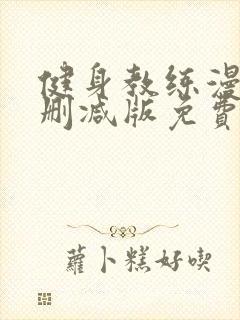 健身教练漫
删减版免費
蘿卜糕好喫